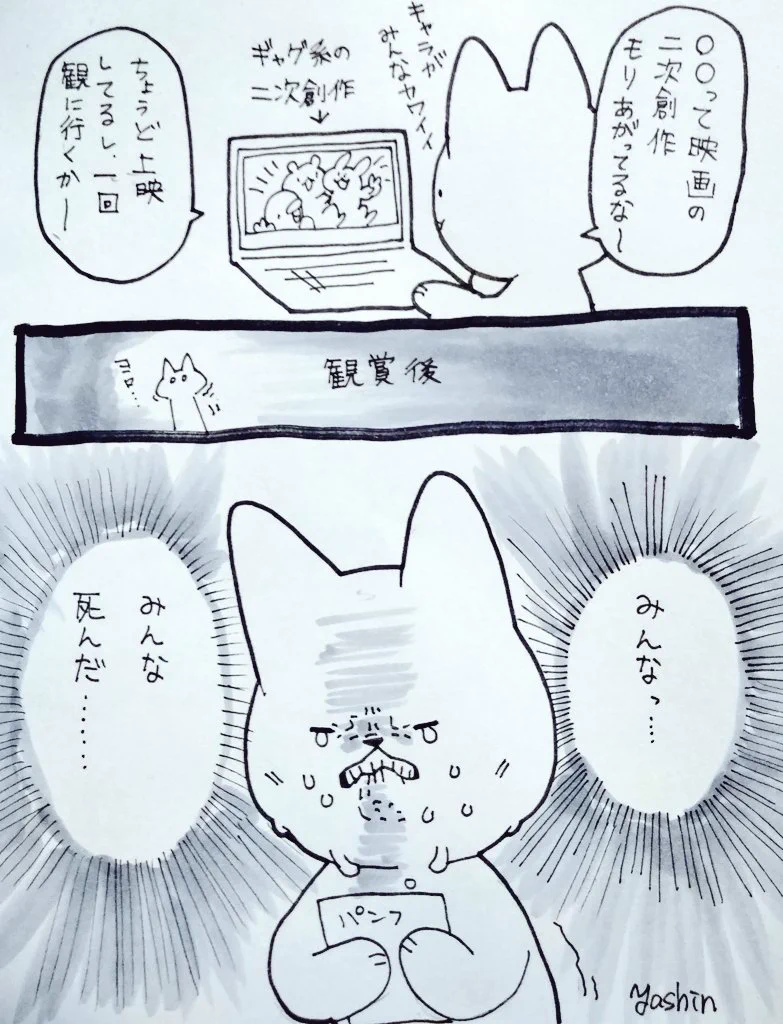 〇〇って映画の
二次創作
もりあがってるな〜
キャラが
みんなカワイイ
ギャグ系の
二次創作
↓
ちょうど上映
してるし、一回
観に行くかー
観賞後
みんなっ…
みんな
死んだ……
パンフ
yashin